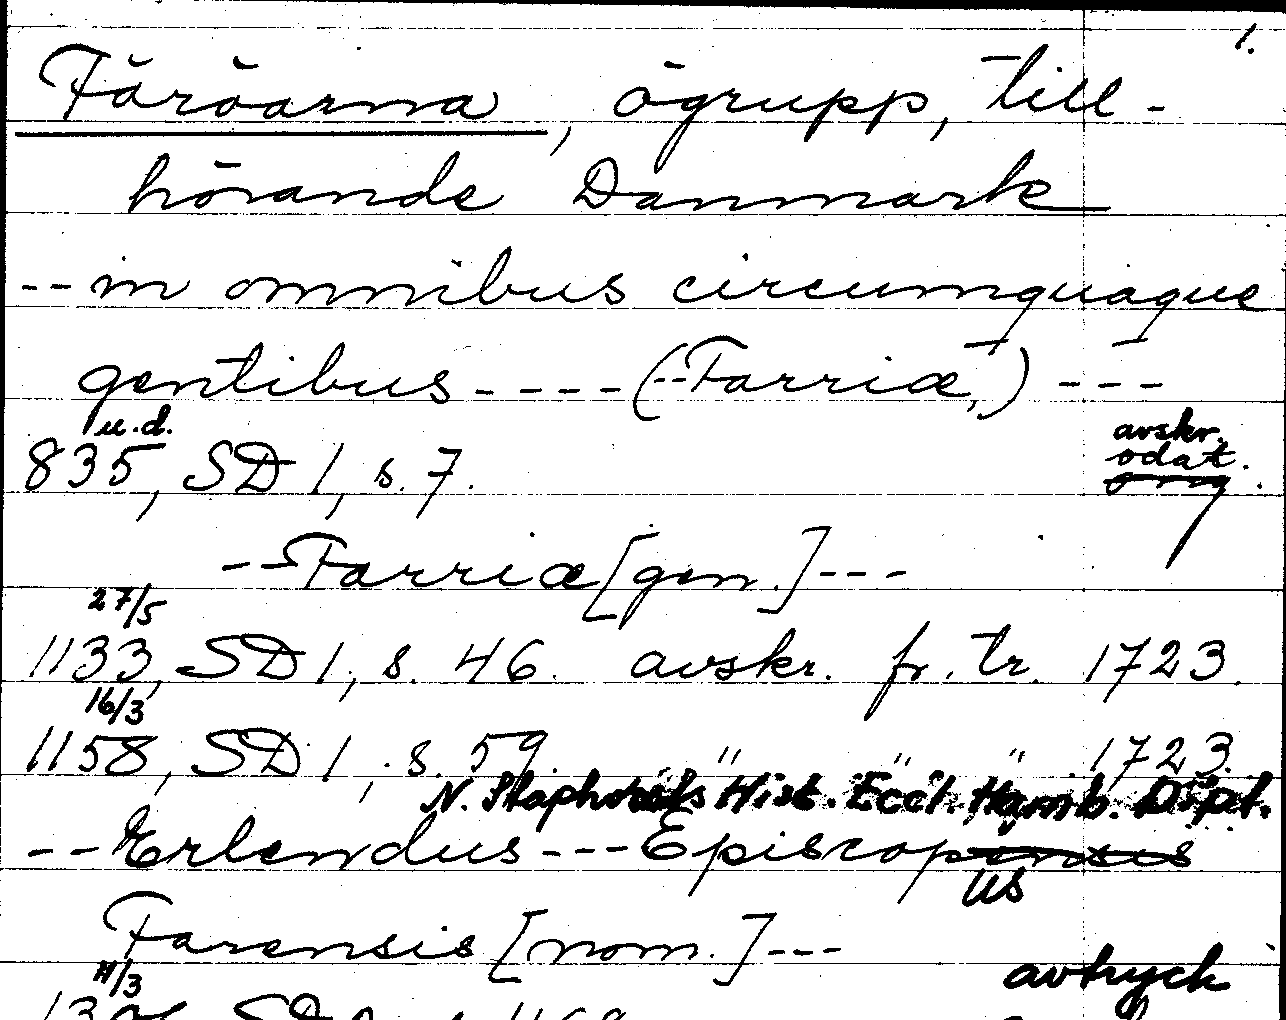 1.
Färöarna, ögrupp, till-
hörande Danmark
--in omnibus circumquaque
gentibus----(--Farriæ,)---
u.d. avskr.
835, SD 1, s. 7. odat.
--Farriæ [gen.]---
27/5
1133, SD 1, s. 46. avskr. fr. tr. 1723.
16/3
1158, SD 1, s. 59. " " " 1723.
N. Staphorsts Hist. Eccl. Hamb. Dipl.
--Erlendus---Episcopus
Farensis [nom.]---
11/3 avtryck